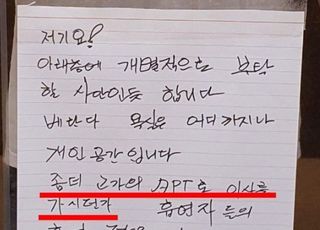 저기요!
아래층에 개별적으로 부탁
할 사안인듯 합니다
베란다 욕실은 어디까지나
개인공간입니다
좀더 고가의 APT로 이사를
가시던가 흡연자들의